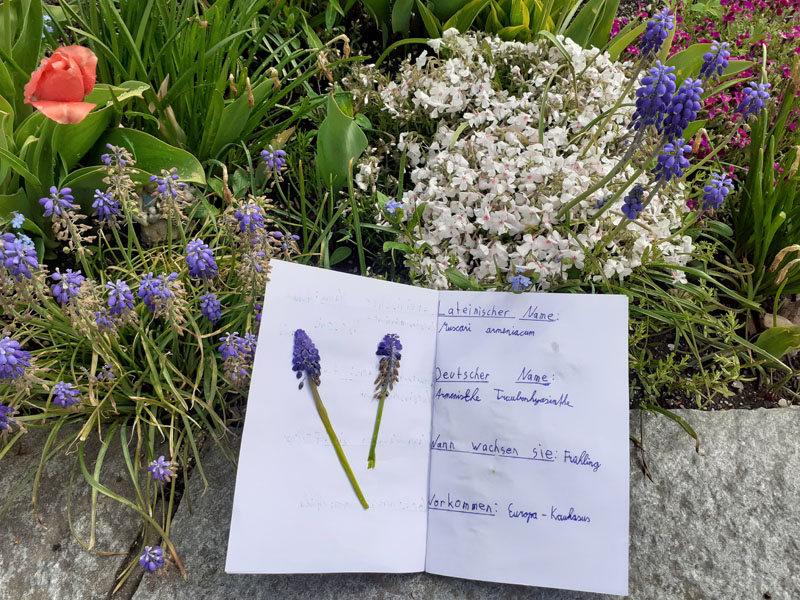 Lateinischer Name:
Muscari armeniacum
Deutscher Name:
Armenische Traubenhyazinthe
Wann wachsen sie: Frühling
Vorkommen: Europa - Kaukasus